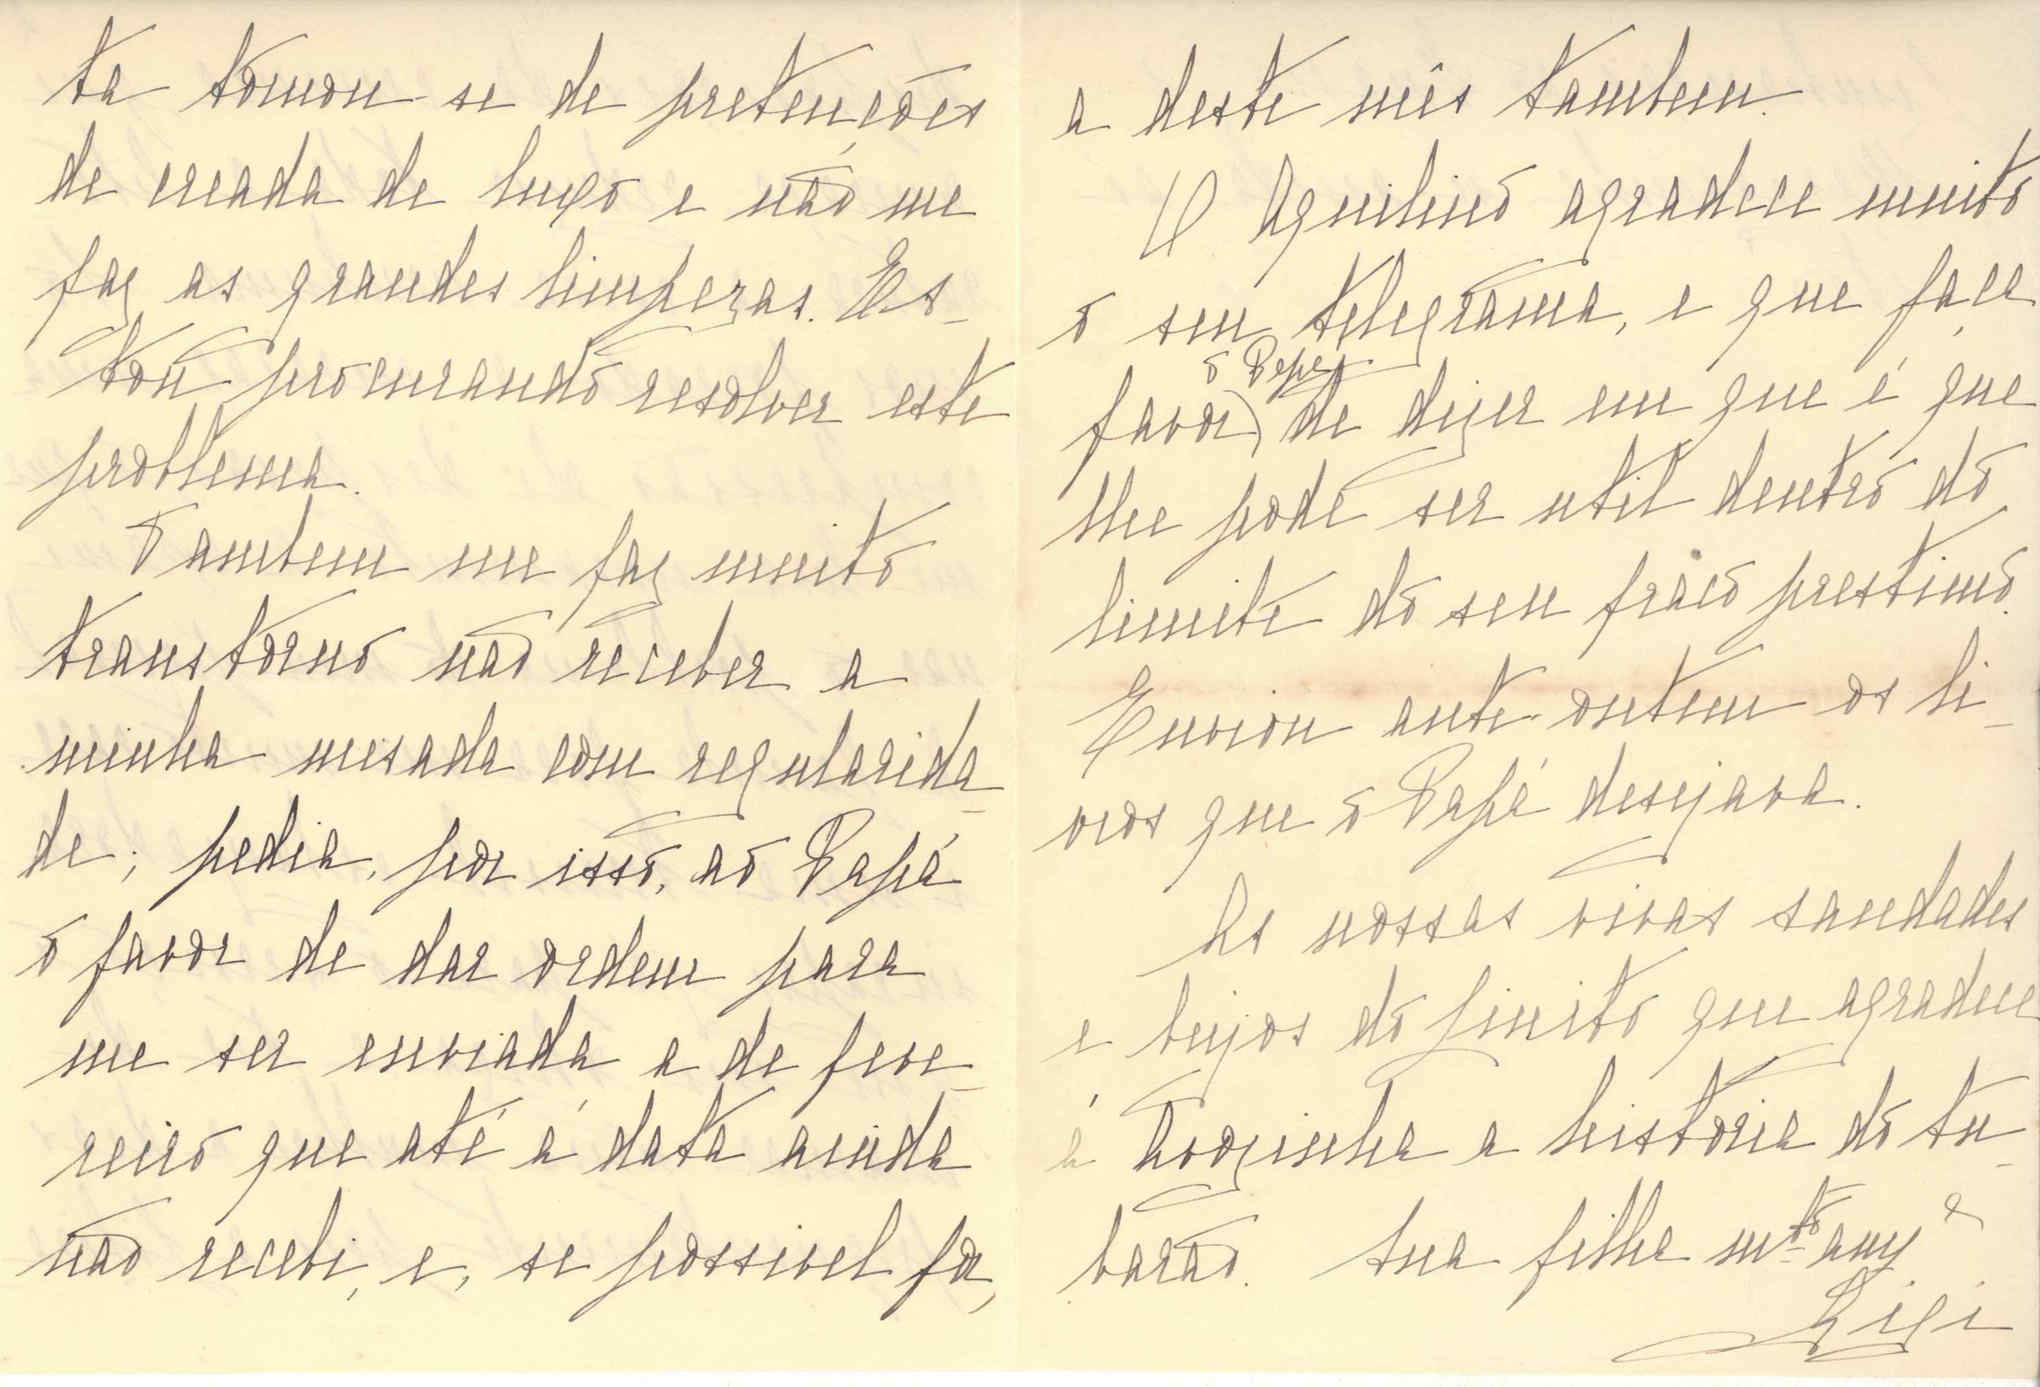 ta tomou-se de pretenções
de creada de luxo e não me
faz as grandes limpezas. Es-
tou procurando resolver este
problema.
Tambem me faz muito
transtorno não receber a
minha mesada com regularida-
de; pedia, por isso, ao Papá
o favor de dar ordem para
me ser enviada a de feve-
reiro que até á data ainda
não recebi, e, se possivel for,
a deste mês tambem.
O Aquilino agradece muito
o seu telegrama, e que faça
o Papá
favor de dizer em que é que
lhe pode ser util dentro do
limite do seu fraco prestimo.
Enviou ante-ontem os li-
vros que o Papá desejava.
As nossas vivas saudades
e beijos do que agradece
á Avozinha a historia do tu-
barão. Sua filha mto amga
Gigi